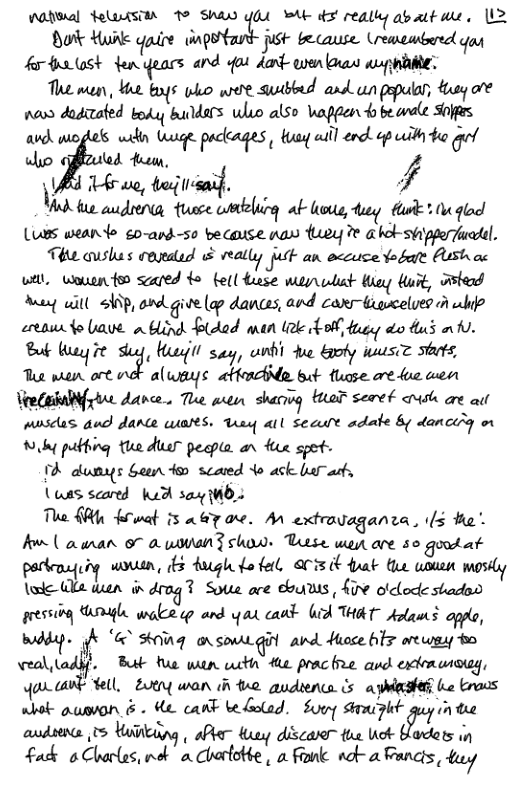 national television to show you but it's really about me. 13
Don't think you're important just because I remembered you
for the last ten years and you don't even know my name.
The men, the boys who were snubbed and unpopular, they are
now dedicated body builders who also happen to be male strippers
and models with huge packages, they will end up with the girl
who ridiculed them.
I did it for me, they'll say.
And the audience those watching at home, they think: I'm glad
I was mean to so-and-so because now they're a hot stripper/model.
The crushes revealed is really just an excuse to bare flesh as
well. Women too scared to tell these men what they think, instead
they will strip, and give lap dances, and cover themselves in whip
cream to have a blind folded men lick it off, they do this on tv.
But they're shy, they'll say, until the booty music starts.
The men are not always attractive but those are the men
receiving the dance. The men sharing their secret crush are all
muscles and dance moves. They all secure a date by dancing on
tv, by putting the other people on the spot.
I'd always been too scared to ask her out.
I was scared he'd say no.
The fifth format is a big one. An extravaganza, it's the:
Am I a man or a woman? show. These men are so good at
portraying women, it's tough to tell. Or is it that the women mostly
look like men in drag? Some are obvious, five o'clock shadow
pressing through makeup and you can't hid THAT Adam's apple,
buddy. A 'G' string on some girl and those tits are way too
real, lady. But the men with the practice and extra money,
you can't tell. Every man in the audience is a master, he knows
what a woman is. He can't be fooled. Every straight guy in the
audience, is thinking, after they discover the hot blondes in
fact a Charles, not a Charlotte, a Frank not a Francis, they